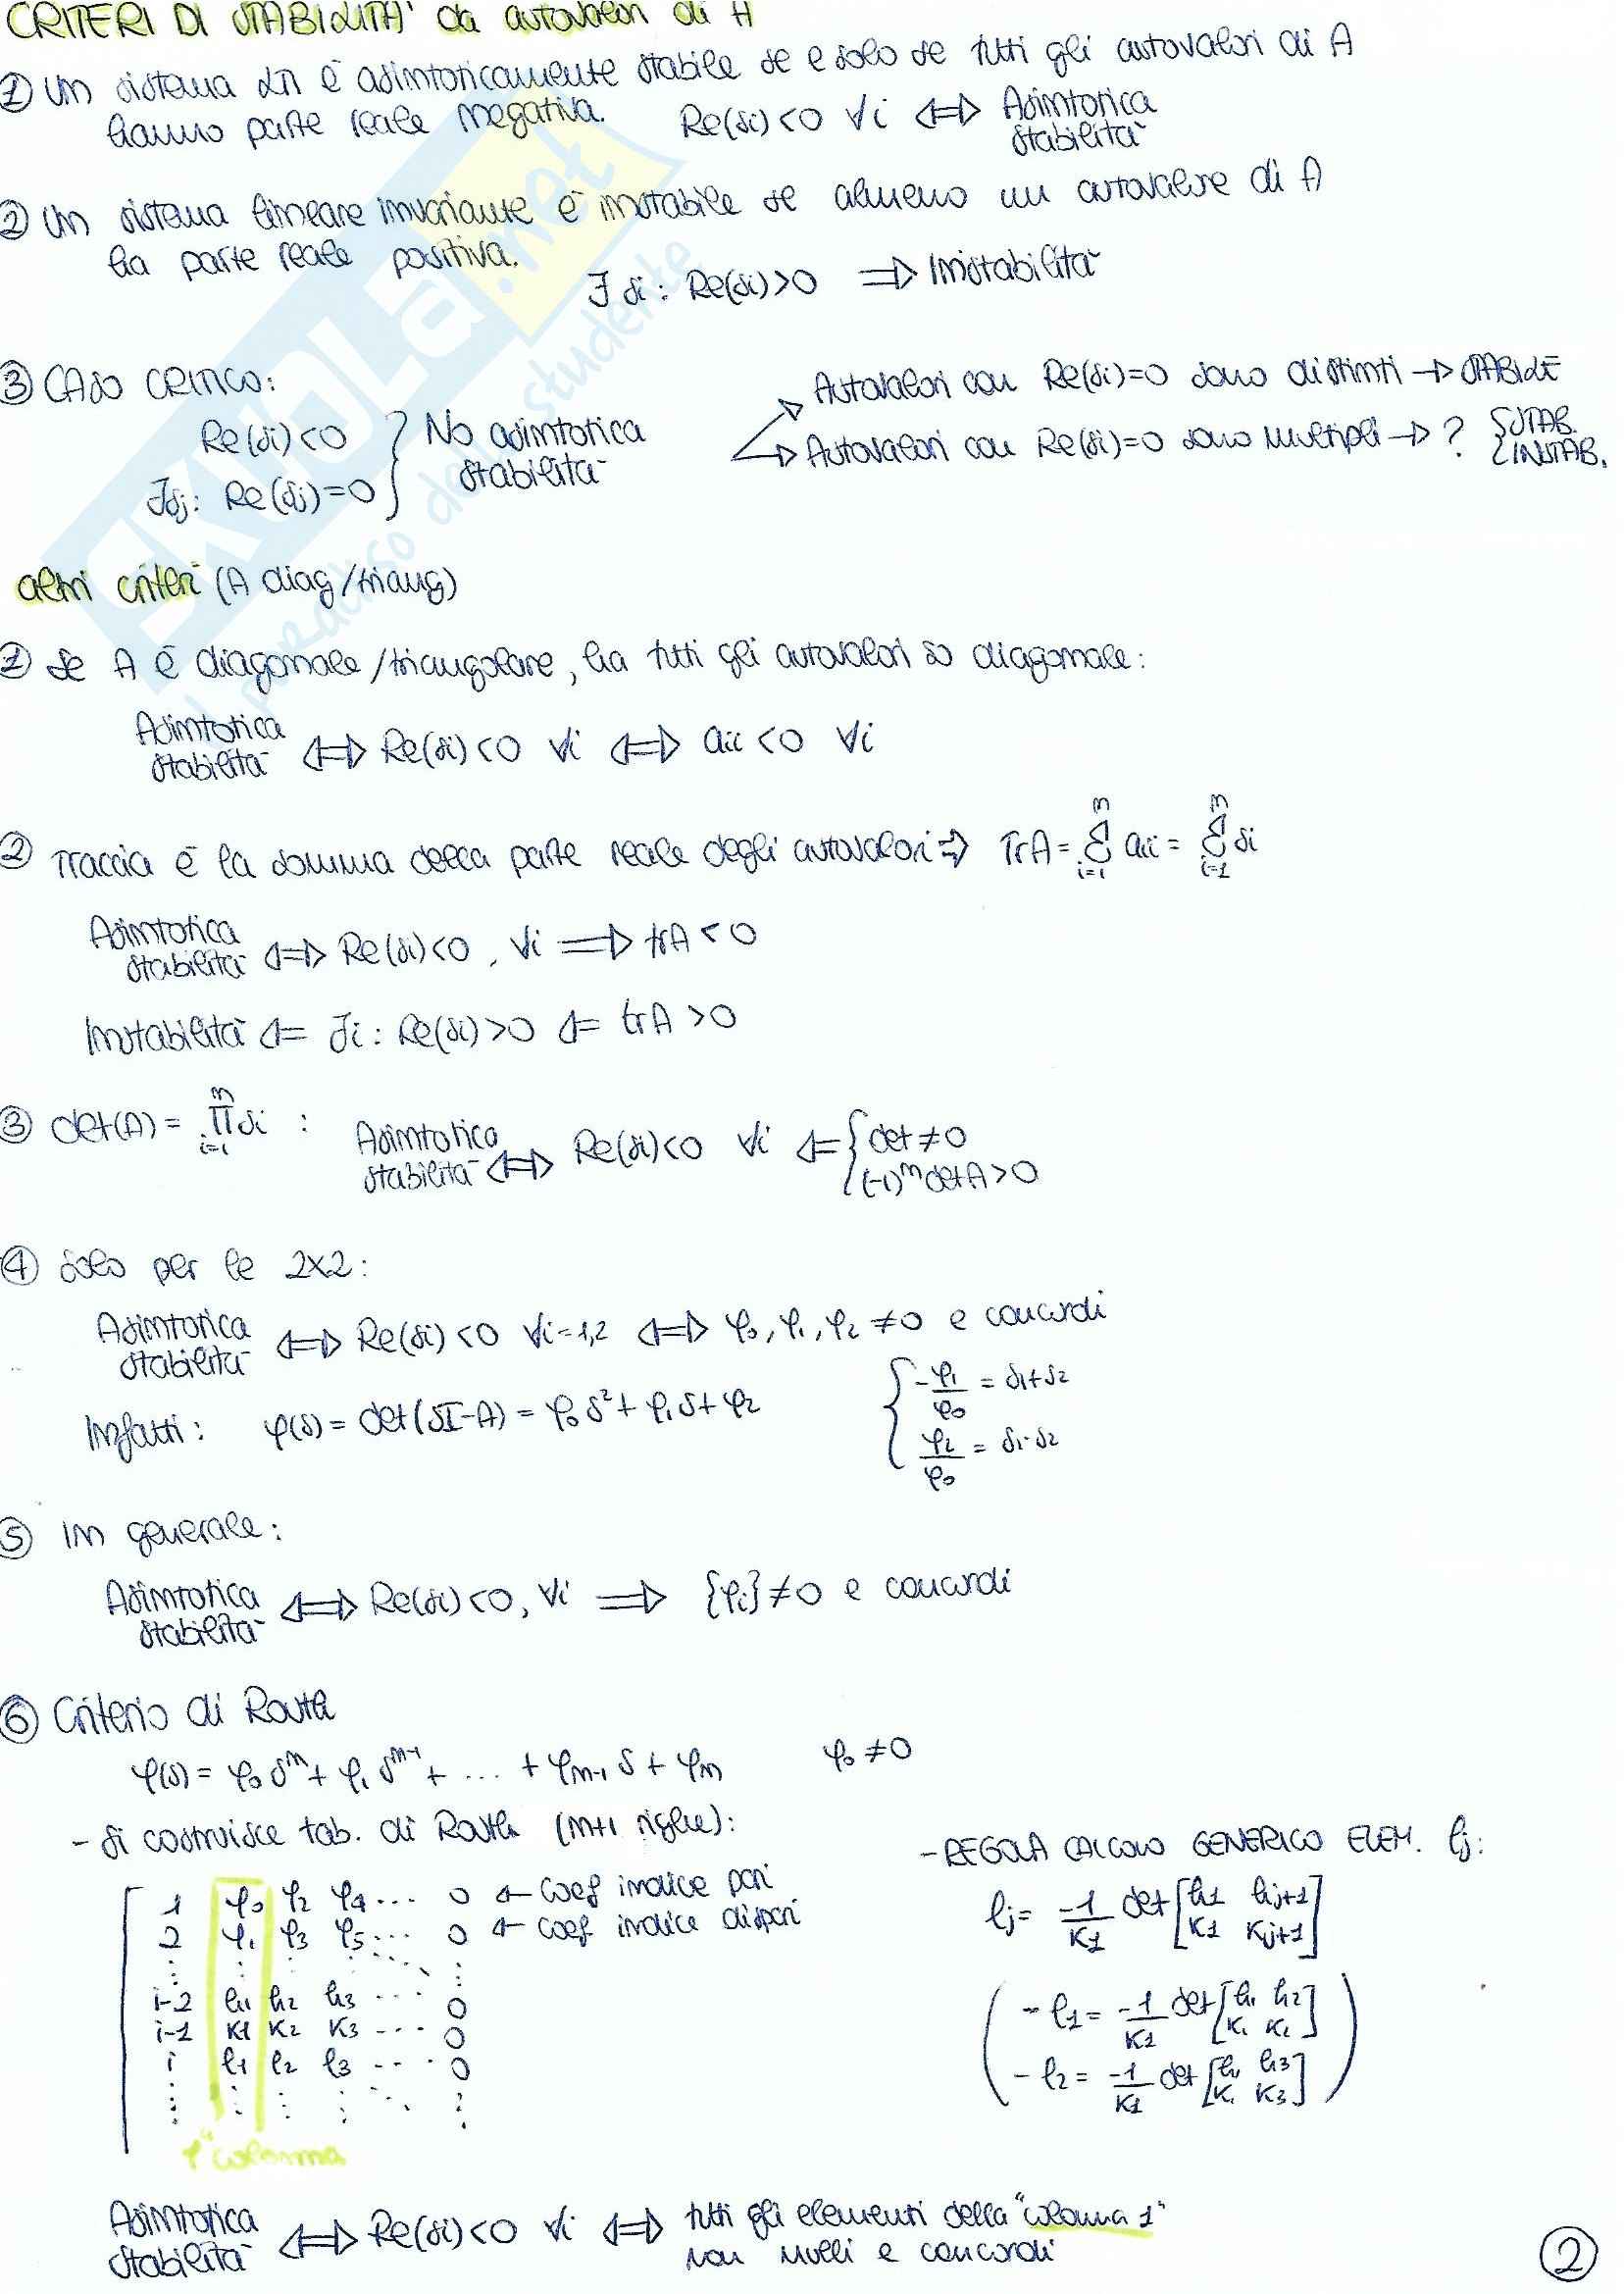 CRITERI DI STABILITA' da autovalori di A
① Un sistema LTI è asintoticamente stabile se e solo se tutti gli autovalori di A
hanno parte reale negativa. Re(si)<0 ∀i ⇔ Asintotica stabilità
② Un sistema lineare invariante è instabile se almeno un autovalore di A
ha parte reale positiva.
∃ si : Re(si)>0 ⇒ Instabilità
③ CASO CRITICO:
Re(si)<0
∃sj: Re(sj)=0 } No asintotica stabilità
Autovalori con Re(si)=0 sono distinti → STABILE
Autovalori con Re(si)=0 sono multipli → ? { STAB. INSTAB.
altri criteri (A diag/triang)
① Se A è diagonale/triangolare, ha tutti gli autovalori so diagonale:
Asintotica stabilità ⇔ Re(si)<0 ∀i ⇔ aii<0 ∀i
② Traccia è la somma della parte reale degli autovalori ⇒ TrA = Σ_{i=1}^{n} aii = Σ_{i=1}^{n} si
Asintotica stabilità ⇔ Re(si)<0, ∀i ⇒ trA<0
Instabilità ⇐ ∃i : Re(si)>0 ⇐ trA>0
③ det(A) = Π_{i=1}^{n} si : Asintotica stabilità ⇔ Re(si)<0 ∀i ⇐ { det≠0
(-1)^n detA>0
④ Solo per le 2x2:
Asintotica stabilità ⇔ Re(si)<0 ∀i=1,2 ⇔ φ0, φ1, φ2 ≠0 e concordi
Infatti: φ(s) = det(sI-A) = φ0 s² + φ1 s + φ2 { -φ1/φ0 = s1+s2
φ2/φ0 = s1·s2
⑤ in generale:
Asintotica stabilità ⇔ Re(si)<0, ∀i ⇒ {φi}≠0 e concordi
⑥ Criterio di Routh
φ(s) = φ0 s^n + φ1 s^{n-1} + ... + φn-1 s + φn φ0 ≠0
- Si costruisce tab. di Routh (n+1 righe):
1 φ0 φ2 φ4 ... 0 ← Coef indice pari
2 φ1 φ3 φ5 ... 0 ← coef indice dispari
i-2 h1 h2 h3 ... 0
i-1 K1 K2 K3 ... 0
i l1 l2 l3 ... 0
1ª colonna
- REGOLA CALCOLO GENERICO ELEM. lj:
lj = -1/K1 det [h1 hj+1
K1 Kj+1]
- l1 = -1/K1 det [h1 h2
K1 K2]
- l2 = -1/K1 det [h1 h3
K1 K3]
Asintotica stabilità ⇔ Re(si)<0 ∀i ⇔ tutti gli elementi della "colonna 1"
non nulli e concordi
②
SKUOLA.net
il paradiso dello studente